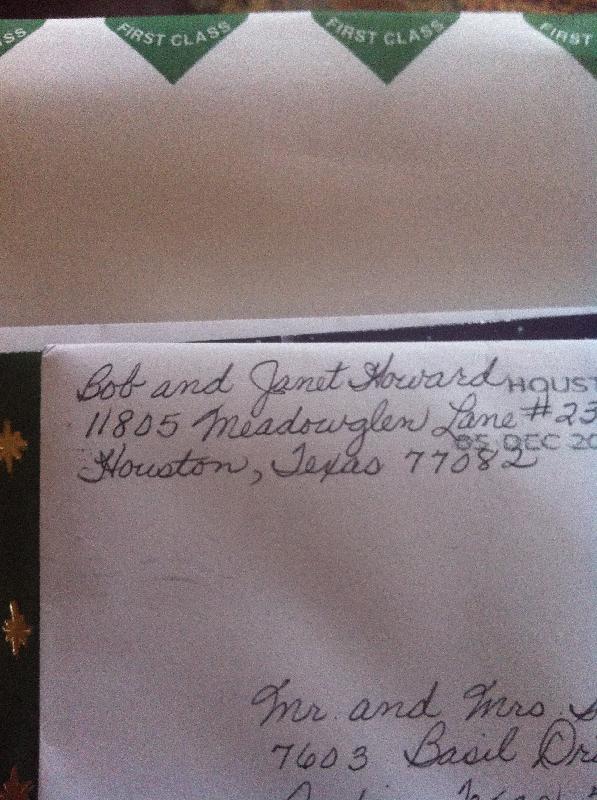 SS FIRST CLASS FIRST CLASS FIRST
Bob and Janet Howard HOUST
11805 Meadowglen Lane #23
05 DEC 20
Houston, Texas 77082
Mr. and Mrs.
7603 Basil Dri